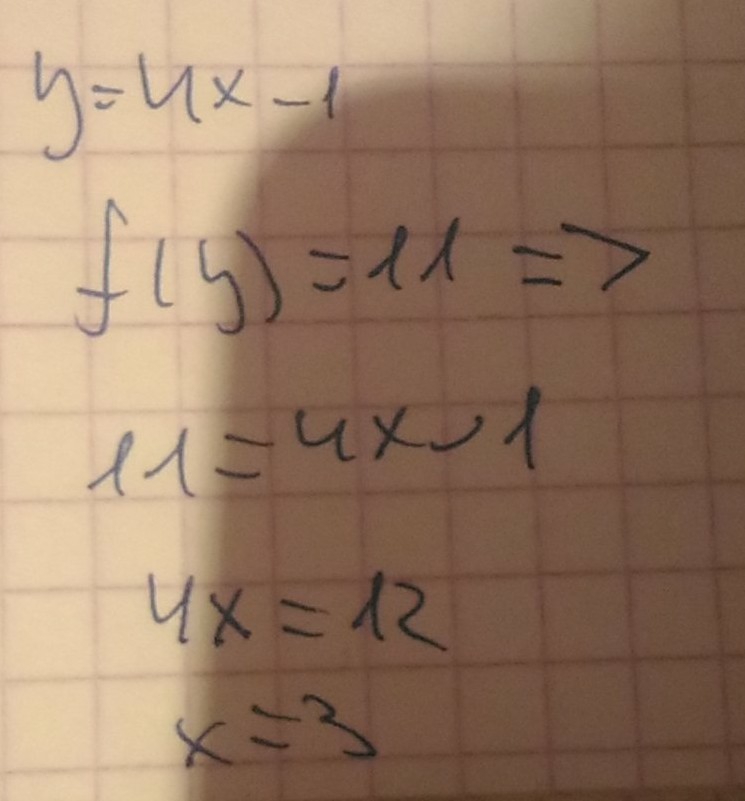 y=4x-1
f(y)=11 =>
11=4x-1
4x=12
x=3